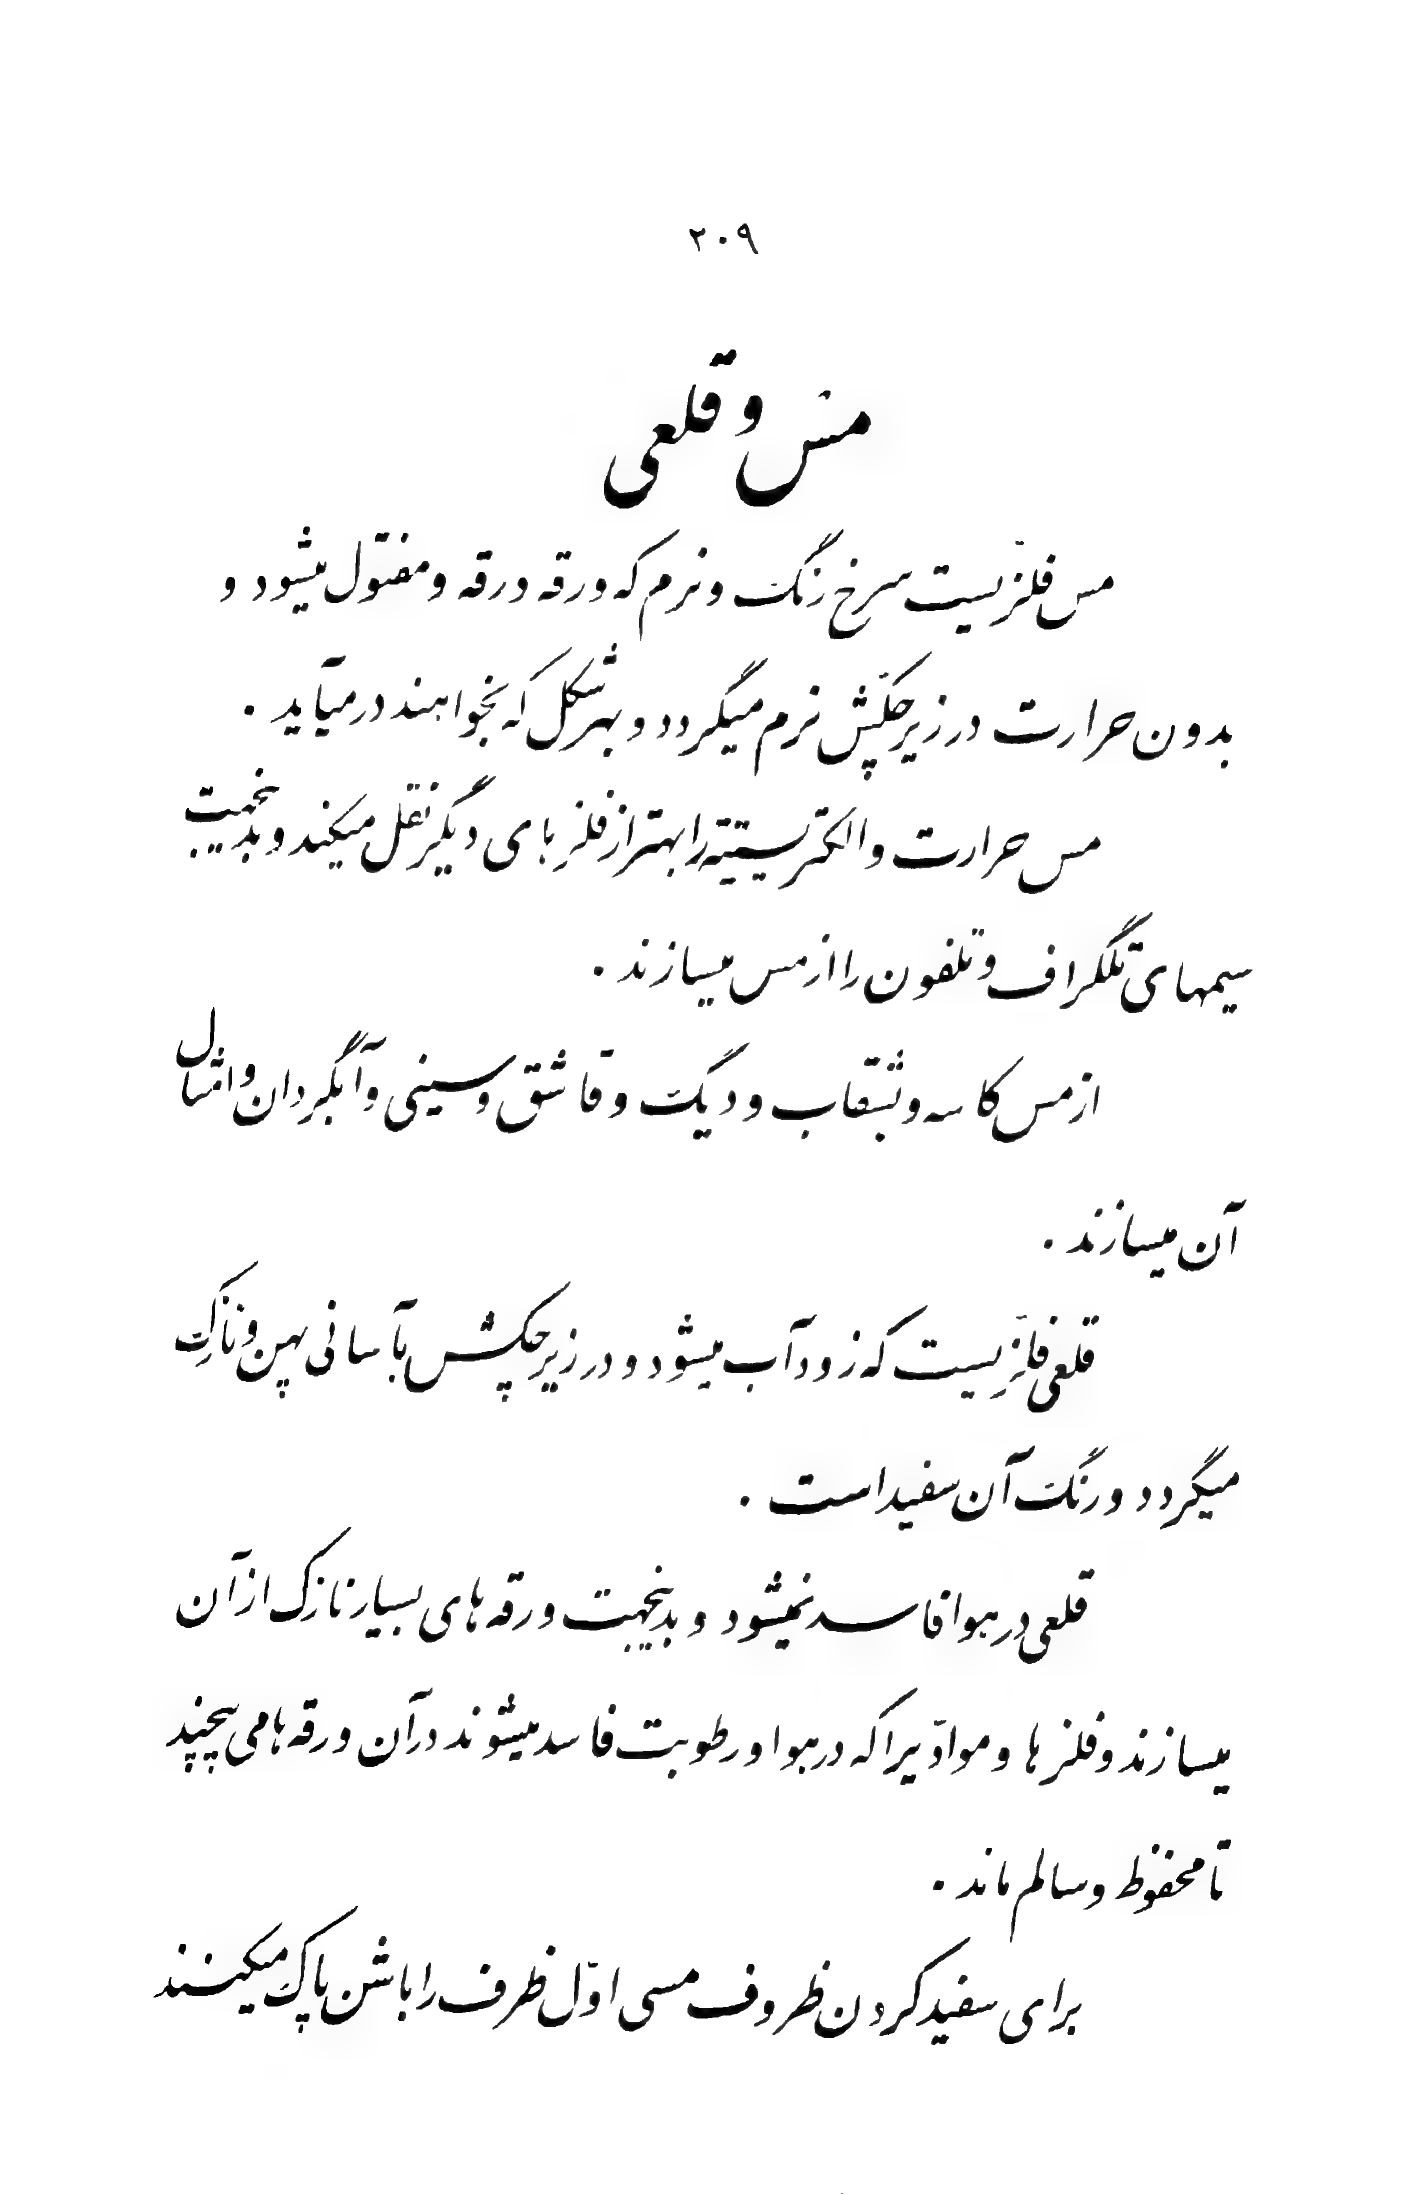 ۲۰۹
مس و قلعی
مس فلزّیست سرخ رنگ و نرم که ورقه ورقه و مفتول میشود و
بدون حرارت در زیر چکّش نرم میگردد و بهر شکل که بخواهند در میآید .
مس حرارت و الکتریسیته را بهتر از فلزهای دیگر نقل میکند و بدینجهت
سیمهای تلگراف و تلفون را از مس میسازند .
از مس کاسه و بشقاب و دیگ و قاشق و سینی و آبگردان و امثال
آن میسازند .
قلعی فلِزّیست که زود آب میشود و در زیر چکش بآسانی پهن و نازک
میگردد و رنگ آن سفید است .
قلعی در هوا فاسد نمیشود و بدینجهت ورقه های بسیار نازک از آن
میسازند و فلزها و موادّیرا که در هوا و رطوبت فاسد میشوند در آن ورقه ها می پیچند
تا محفوظ و سالم ماند .
برای سفید کردن ظروف مسی اوّل ظرف را با شن پاک میکنند